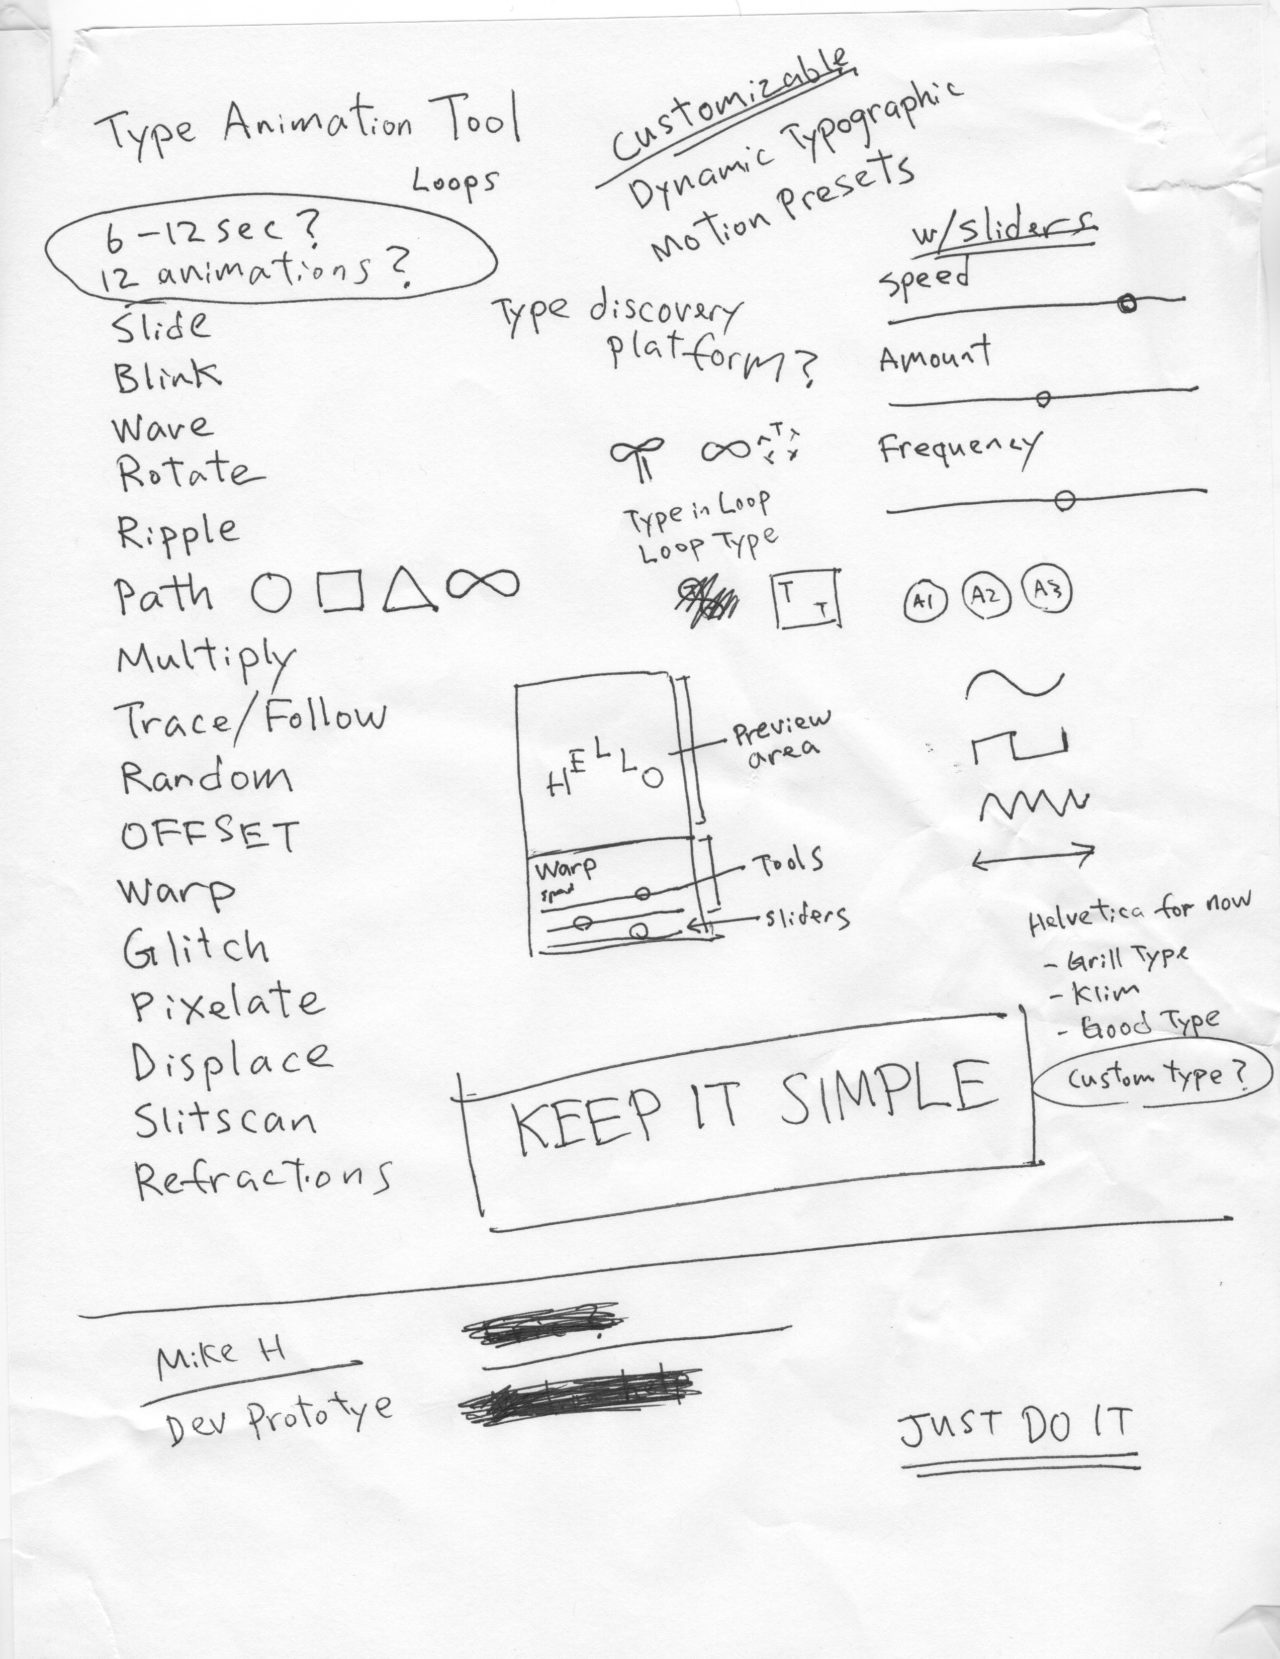 Type Animation Tool
Loops
6-12 sec?
12 animations?
Slide
Blink
Wave
Rotate
Ripple
Path
Multiply
Trace/Follow
Random
OFFSET
Warp
Glitch
Pixelate
Displace
Slitscan
Refractions
Customizable
Dynamic Typographic
Motion Presets
Type discovery
platform?
w/sliders
Speed
Amount
Frequency
T
Type in Loop
Loop Type
T
T
A1 A2 A3
HELLO
Preview
area
Warp
speed
Tools
sliders
Helvetica for now
- Grill Type
- Klim
- Good Type
Custom type?
KEEP IT SIMPLE
Mike H
Dev Prototye
JUST DO IT